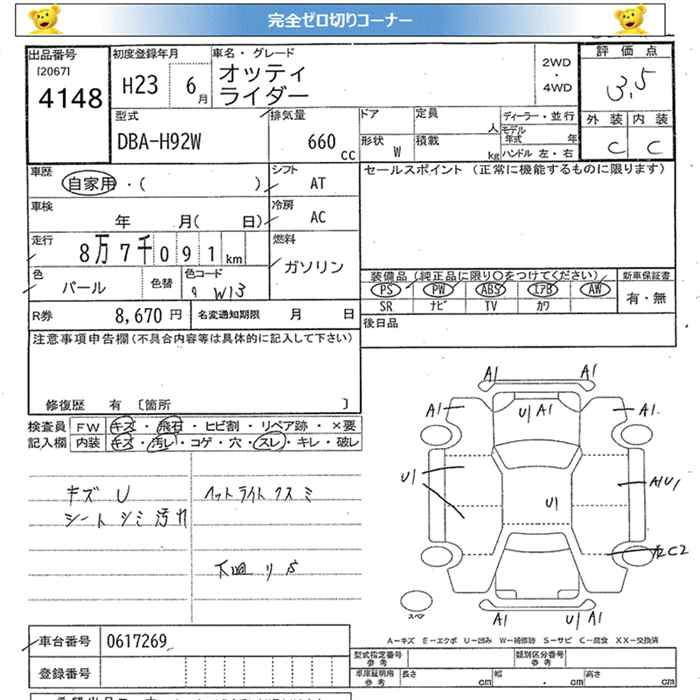 完全ゼロ切りコーナー
出品番号 初度登録年月 車名・グレード 評価点
[2067] オッティ 2WD
4148 H23 6月 ライダー ・ 4WD 3.5
型式 排気量 ドア 定員 人 ディーラー・並行 外装 内装
DBA-H92W 660 cc 形状 W 積載 kg モデル年式 年 ハンドル 左・右 C C
車歴 シフト セールスポイント (正常に機能するものに限ります)
自家用・( ) AT
車検 冷房
年 月( 日) AC
走行 燃料
8万7千091 km ガソリン
色 色替 色コード 装備品 (純正品に限り○をつけてください) 新車保証書
パール W13 PS PW ABS エアB AW 有・無
SR ナビ TV カワ
R券 8,670 円 名変通知期限 月 日 後日品
注意事項申告欄(不具合内容等は具体的に記入して下さい)
修復歴 有 〔箇所 〕
検査員 FW キズ・飛石・ヒビ割・リペア跡・×要
記入欄 内装 キズ・汚レ・コゲ・穴・スレ・キレ・破レ
キズ U ヘットライトクスミ
シートシミ汚れ
下廻りサ
A1 A1
A1 U1 A1 A1
U1 U1 A1U1
C2
A1 U1 A1
スペア
A-キズ E-エクボ U-凹み W-補修跡 S-サビ C-腐食 XX-交換済
車台番号 0617269 型式指定番号 参考 類別区分番号 参考
登録番号 車庫証明用 参考 長さ cm 幅 cm 高さ cm